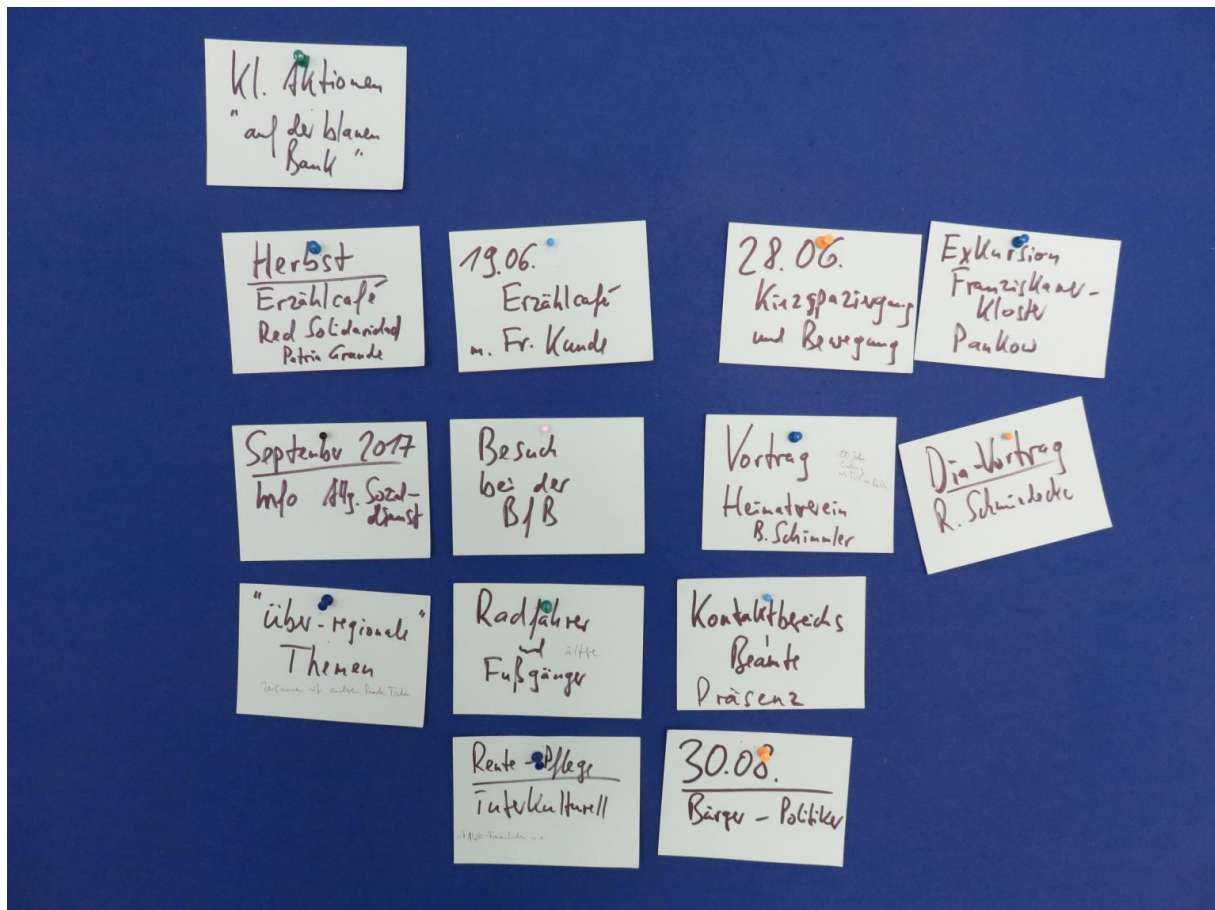 Kl. Aktionen
"auf der blauen
Bank"
Herbst
Erzählcafé
Red Solidaridad
Patria Grande
19.06.
Erzählcafé
m. Fr. Kunde
28.06.
Kiezspaziergang
und Bewegung
Exkursion
Franziskaner-
Kloster
Pankow
September 2017
Info Allg. Sozial-
dienst
Besuch
bei der
BfB
Vortrag
Heimatverein
B. Schimmler
Dia-Vortrag
R. Schmiedecke
"über-regionale"
Themen
Radfahrer
und ältere
Fußgänger
Kontaktbereichs
Beamte
Präsenz
Rente - Pflege
interkulturell
30.08.
Bürger - Politiker